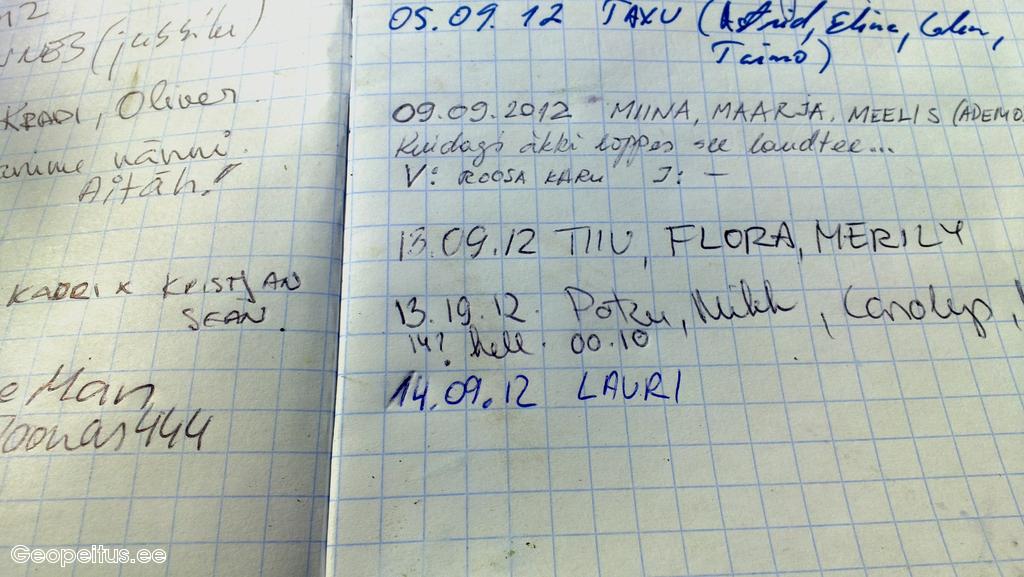 12
(jussike)
KRADI, Oliver.
nännu.
Aitäh!
KADRI & KRISTJAN
SEAN.
eMan
Toonas444
05.09.12 TAXU (Astrid, Elina,
Taimo)
09.09.2012 MIINA, MAARJA, MEELIS (ADEMO
Kuidagi äkki loppes see laudtee...
V: ROOSA KARU J: –
13.09.12 TIIU, FLORA, MERILY
13.19.12. Potzu, Mikk, Carolyp,
14? kell. 00.10
14.09.12 LAURI
Geopeitus.ee